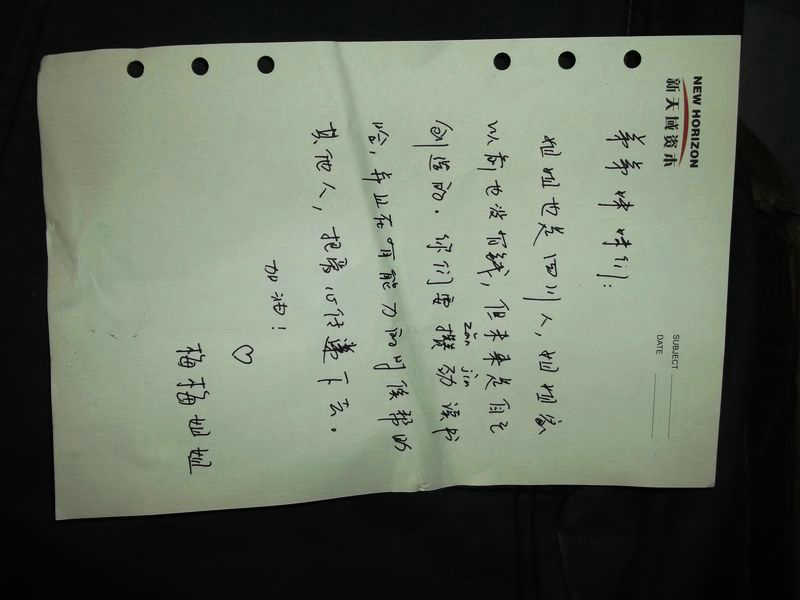 NEW HORIZON
新天域资本
SUBJECT
DATE
弟弟妹妹们:
姐姐也是四川人,姐姐家
以前也没有钱,但未来是自己
创造的。你们要攒劲读书
zǎn jìn
哈,并且在有能力的时候帮助
其他人,把爱心传递下去。
加油!
♡
梅梅姐姐